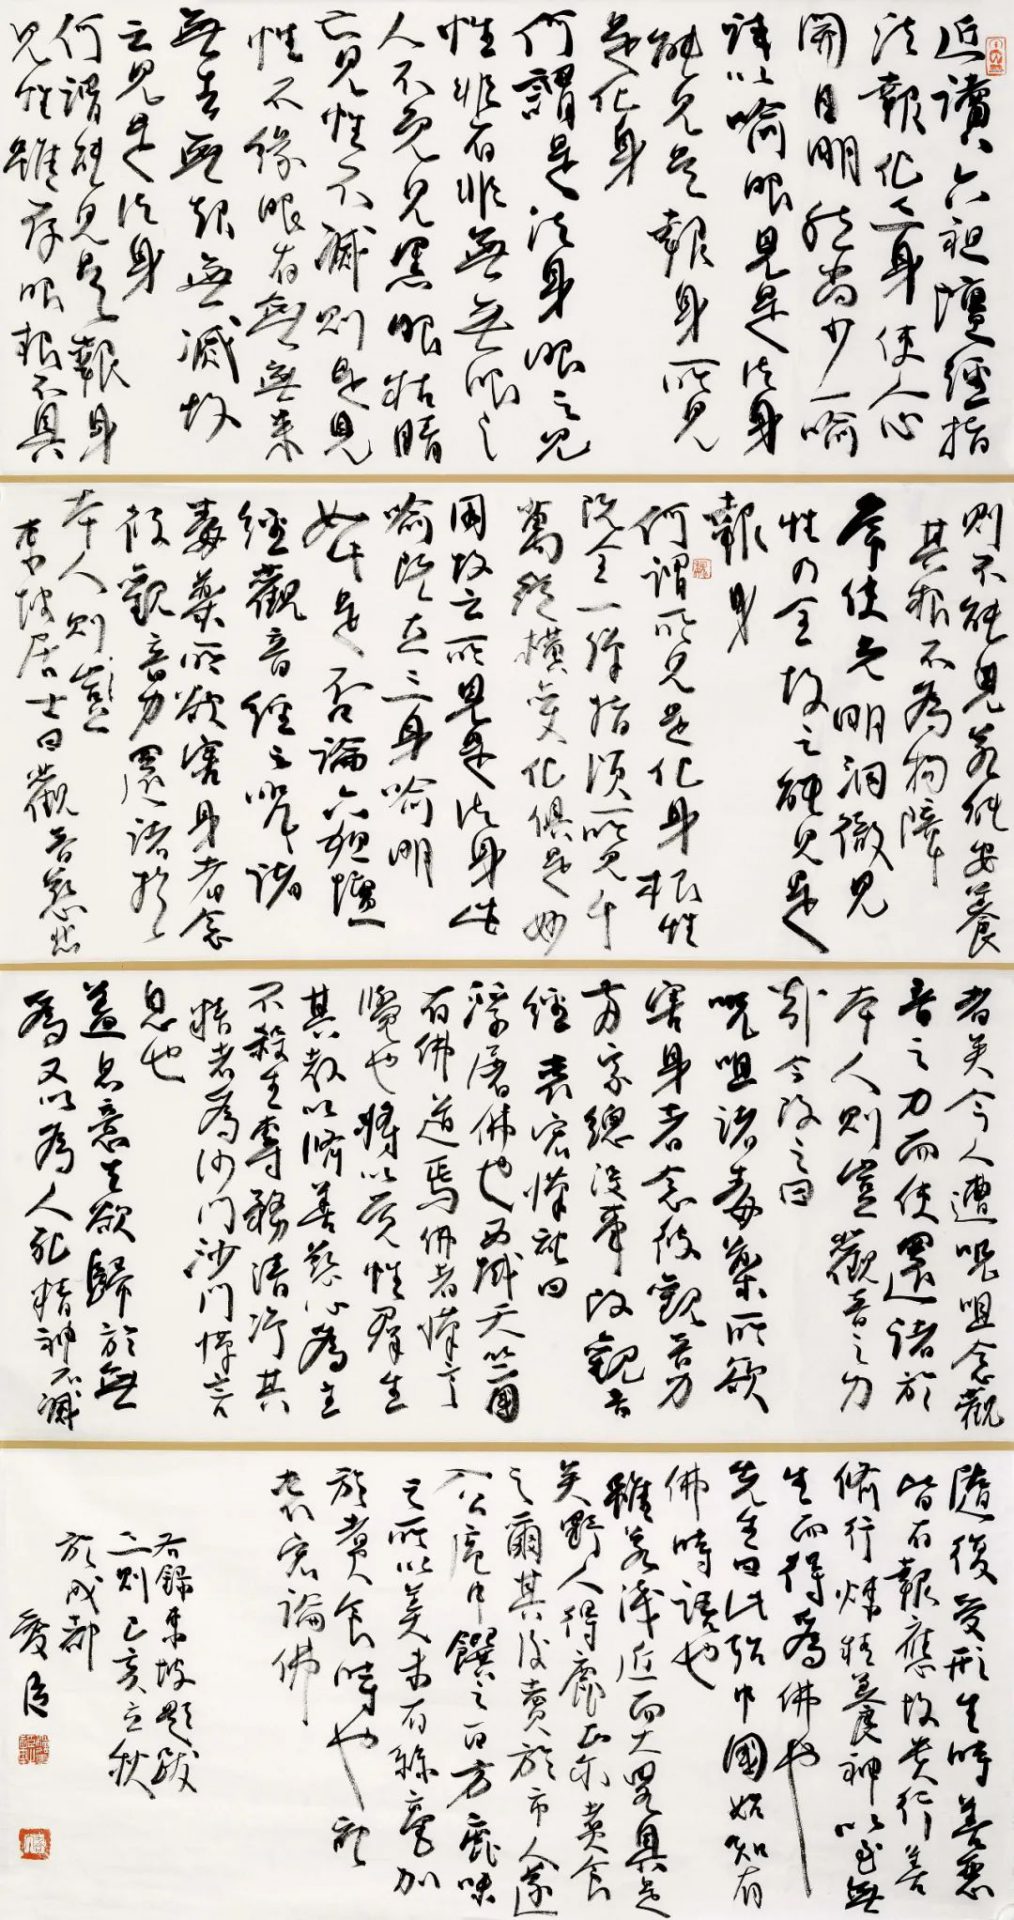 近讀六祖壇經指
法報化三身使人心
開目明然尚少一喻
試以喻眼見是法身
能見是報身所見
是化身
何謂是法身眼之見
性非有非無無眼之
人不免見黑眼枯睛
亡見性不滅則是見
性不緣眼有無無來
無去無起無滅故
云見是法身
何謂能見是報身
見性雖存眼根不具
則不能見若能安養
其根不為物障
常使光明洞徹見
性乃全故云能見是
報身
何謂所見是化身根性
既全一彈指頃所見千
萬縱橫變化俱是妙
用故云所見是法身此
喻既立三身喻明
如此是否論六祖壇
經觀音經云咒諸
毒藥所欲害身者念
彼觀音力還諸於
本人則豈
東坡居士曰觀音慈悲
者矣今人遭咒咀念觀
音之力而使還諸於
本人則豈觀音之力
則今改之曰
咒咀諸毒藥所欲
害身者念彼觀音力
兩家總沒事改觀音
經 袁宏漢紀曰
浮屠佛也西域天竺國
有佛道焉佛者漢言
覺也將以覺性群生
其教以脩善慈心為主
不殺生專務清淨其
精者為沙門沙門漢言
息也
蓋息意去欲歸於無
為又以為人死精神不滅
隨復受形生時善惡
皆有報應故貴行善
脩行煉精養神以至無
生而得為佛也
先生曰此殆中國始知有
佛時語也
雖若淺近而大略具足
矣野人得鹿正爾煮食
之爾其後賣於市人遂
入公庖中饌之百方鹿味
之所以美未有絲毫加
於煮食時也記
袁宏論佛
右錄東坡題跋
三則己亥立秋
於成都